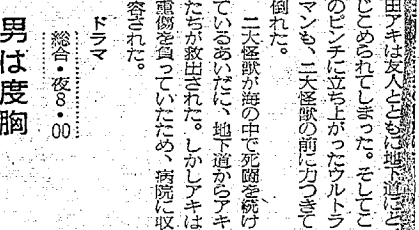 田アキは友人とともに地下道にと
じこめられてしまった。そしてこ
のピンチに立ち上がったウルトラ
マンも、二大怪獣の前に力つきて
倒れた。
二大怪獣が海の中で死闘を続け
ているあいだに、地下道からアキ
たちが救出された。しかしアキは
重傷を負っていたため、病院に収
容された。
ドラマ
総合・夜8・00
男は度胸